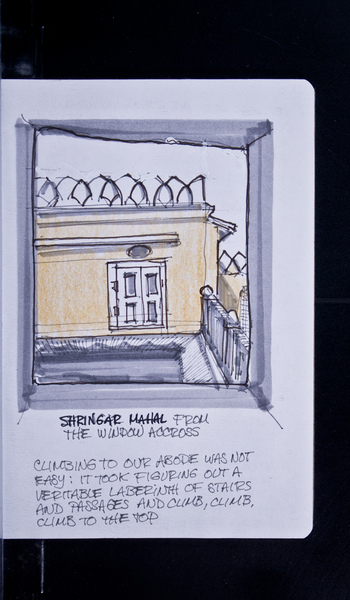 SHRINGAR MAHAL FROM
THE WINDOW ACCROSS
CLIMBING TO OUR ABODE WAS NOT
EASY: IT TOOK FIGURING OUT A
VERITABLE LABERINTH OF STAIRS
AND PASSAGES AND CLIMB, CLIMB,
CLIMB TO THE TOP